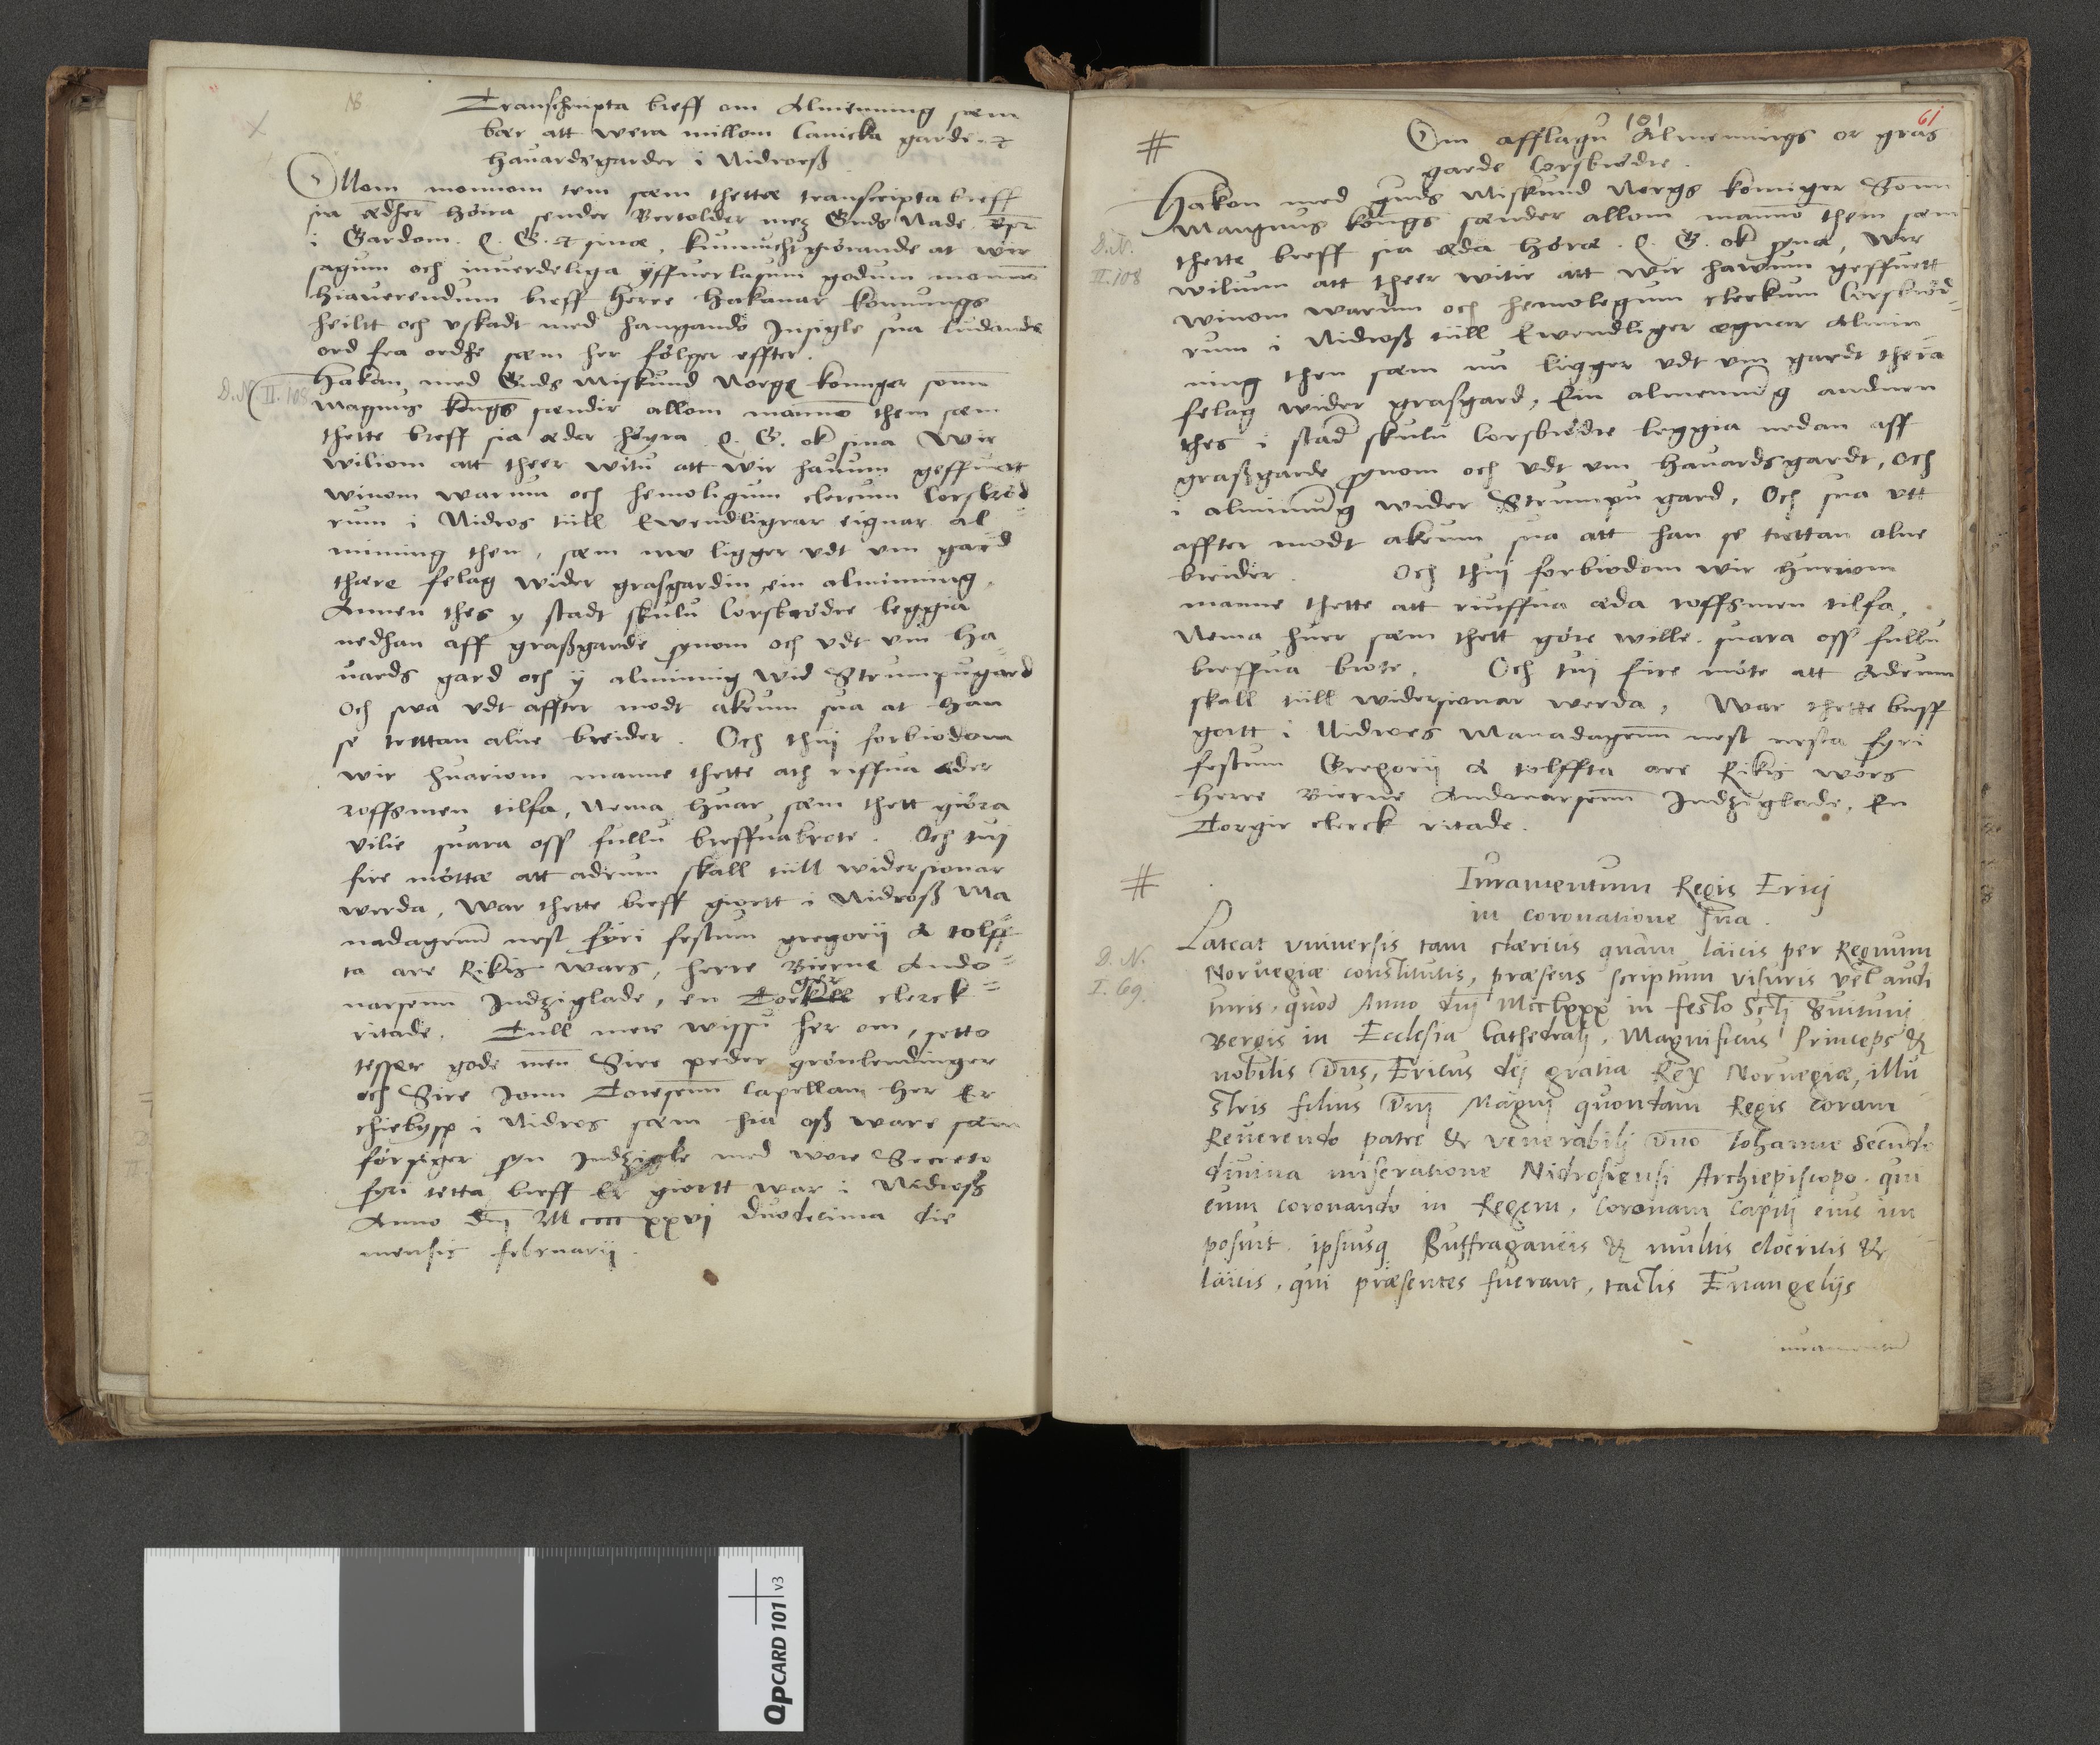 Transchripta breff om Almenning sæm
bær att wera millom Canicka garde. &
Hauardsgarder i Nidroß
Ollom monnom tem sæm thettæ transcripta breff
sia ædher höira sender Bertolder mez Guds Nade
i Gardom. Q. G. & sinæ, kunnucht giörande at wir
sagum och inuerdeliga yffuerlasum godum monnom
hiauerendum breff herre Hakanar konungs
heilit och vskadt med hangande Insigle sua ludande
ord fra ordhe sæm her fölger effter.
D. N. II. 108
Hakan med Guds Miskund Norges konnger sonn
Magnus kongs sendir allom mannom them sæm
thette breff sia æder höyra Q. G. ok sina Wir
wiliom att theer witu att wir hauum geffuett
winom warum och hemoligum clercum Corsbröd=
rum i Nidros tiill Ewendligrar eignar al
minning then, sæm nw ligger vdt vm gard
thære felag wider grasgardin ein alminning,
Annen thes y stadt skulu Corsbrödre leggia
nedhan aff graßgarde synom och vdt vm Ha=
uards gard och y alminnig wid Strumpugard
och swa vdt affter modt akrum sua at han
se trettan alne breider. Och thij forbiodom
wir huariom manne thette ath riffua æder
roffsmen tilfa, Nema huar sæm thett giöra
vilie suara oss fullu breffuabrote. Och tuj
fire mötte att adrum skall tiill widersionar
werda, War thette breff giortt i Nidroß Ma
nadagenn nest fyri festum gregorij A tolff=
ta are Rikis wars, herre Bierne Audo=
narsonn Indziglade, en Torger clerck=
ritade. Tiill mere wissu her om, setto
tesser gode menn Sire peder grönlendinger
och Sire Jonn Toresonn Capellan her Er
chiebysp i Nidros sæm hia oß ware sæm
försiger syn Indzigle med wore Secreto
fyri tetta breff Er giortt war i Nidroß
Anno dnj Mccccxxvj duodecima die
mensis februarij.
101
61
Om afflagu Almennings or gras
garde Corsbrödre.
Hakon med guds Miskund Norgs konnger Sonn
Mangnus kongs sænder allom mannom them sæm
D. N.
II. 108
thette breff sia æda höræ. Q. G. ok synæ, Wir
wilium att theer witie att wir hawum geffuett
winom warum och hemolegum clerkum Corsbröd=
rum i Nidroß tiill Ewendliger ægnar Almin
ning then sæm nu ligger vdt vm gardt thera
felag wider grasgard, Ein almenning andnen
thes i stad skulu Corsbrödre leggia nedan aff
graßgarde synom och vdt vm Hauardsgardt, och
i alminning wider Strumpu gard, Och sua vtt
affter modt akrum sua att han se trettan alne
breider. Och thuj forbiodom wir huariom
manne thette att riuffua æda roffsmen tilfa,
Nema huer sæm thett göre wille suara oss fullu
breffua brote. Och tuj fire möte att Adrum
skall tiill widersionar werda, War thette breff
gortt i Nidroes Manadagenn nest nesta fyri
festum Gregorij A tolffta are Rikis wors
Herre Bierne Audonarsonn Indziglade, En
Torgir clerck ritade.
Iuramentum Regis Ericj
in coronatione sua.
D. N.
I. 69.
Pateat vniuersis tam clæricis quàm laicis per Regnum
Noruegiæ constitutis, præsens scriptum visuris vel audi
turis, quòd Anno dnj Mcclxxx in festo Sctj Suitunj
Bergis in Ecclesia Cathedralj, Magnificus Princeps &
nobilis Dns, Ericus dej gratia Rex Noruegiæ, illu
stris filius Dnj Magnj quondam Regis coram
Reuerendo patre & venerabilj Dno Iohanne Secundo
diuina miseratione Nidrosiensi Archiepiscopo, qui
eum coronando in Regem, Coronam Capitj eius im
posuit, ipsiusq Suffraganeis & multis clæricis &
laicis, qui præsentes fuerant, tactis Euangelijs
iuramentum